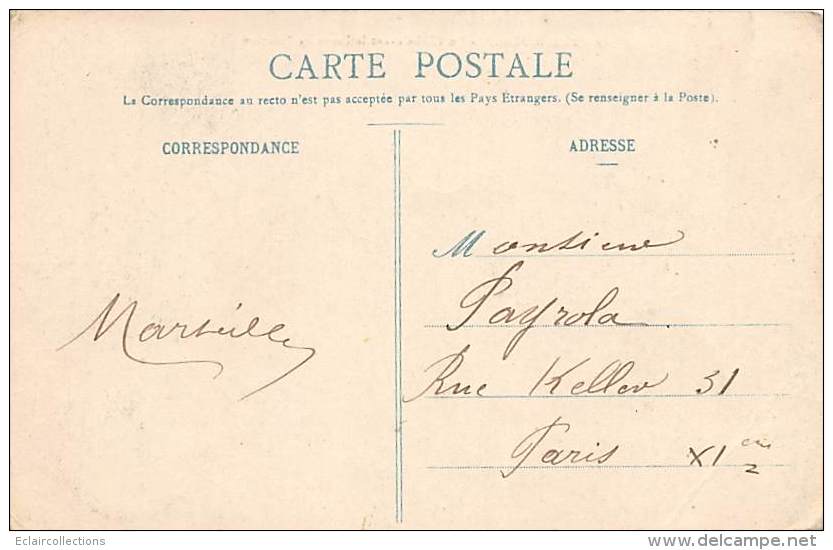 CARTE POSTALE
La Correspondance au recto n'est pas acceptée par tous les Pays Étrangers. (Se renseigner à la Poste).
CORRESPONDANCE
ADRESSE
Monsieur
Payrola
Marseille
Rue Keller 31
Paris XI eme
Eclaircollections
delcampe.net